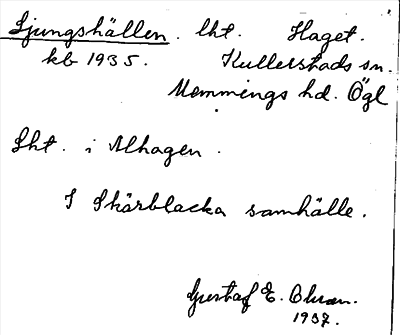 Ljungshällen. lht. Haget.
kb 1935. Kullerstads sn.
Memmings hd. Ögl
Lht. i Alhagen.
I Skärblacka samhälle.
Gustaf E.
1937.